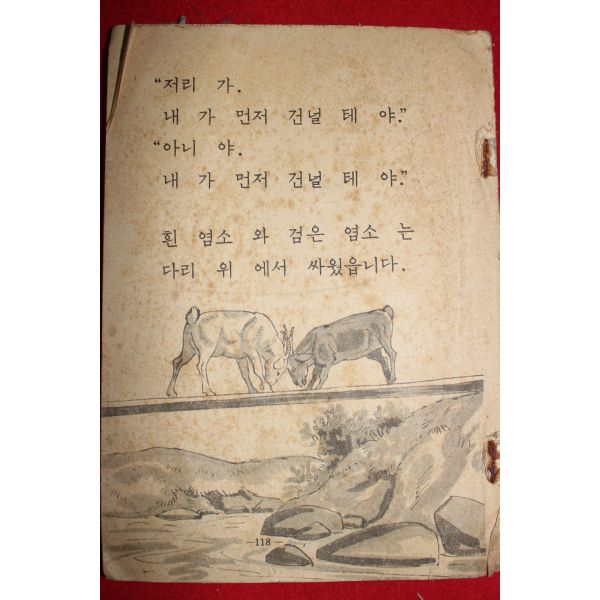 “저리 가.
내 가 먼저 건널 테 야.”
“아니 야.
내 가 먼저 건널 테 야.”
흰 염소 와 검은 염소 는
다리 위 에서 싸웠읍니다.
—118—